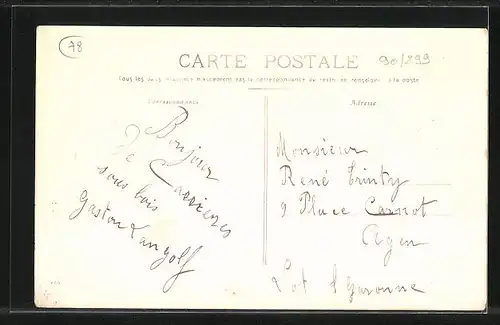 78
CARTE POSTALE
90/899
Tous les pays n'acceptent pas la correspondance au recto, se renseigner à la poste
Correspondance
Adresse
Bonjour
De Carrières
sous bois
Gaston Langolf
Monsieur
René Trinty
9 Place Carnot
Agen
Lot & Garonne